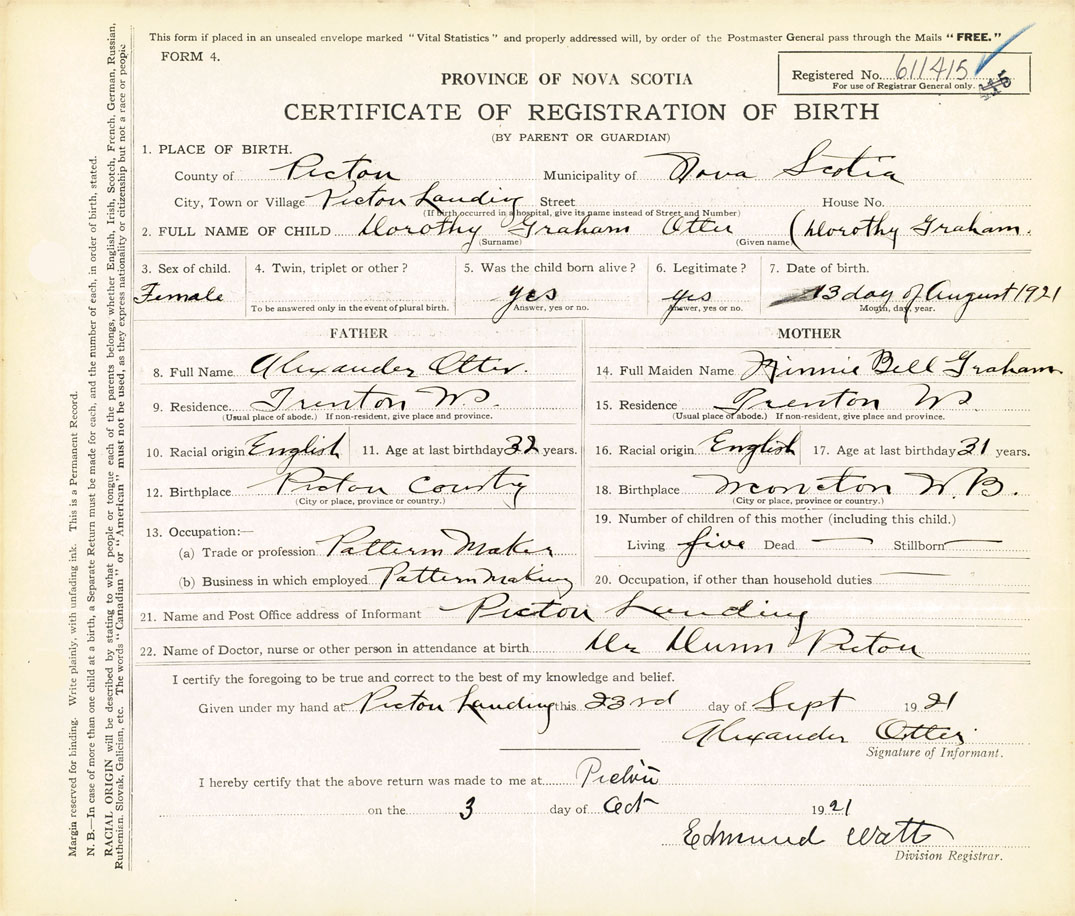 This form if placed in an unsealed envelope marked "Vital Statistics" and properly addressed will, by order of the Postmaster General pass through the Mails "FREE."
FORM 4.
Registered No. 611415
For use of Registrar General only.
PROVINCE OF NOVA SCOTIA
CERTIFICATE OF REGISTRATION OF BIRTH
(BY PARENT OR GUARDIAN)
1. PLACE OF BIRTH.
County of Picton Municipality of Nova Scotia
City, Town or Village Picton Landing Street House No.
(If birth occurred in a hospital, give its name instead of Street and Number)
2. FULL NAME OF CHILD Dorothy Graham Otter (Dorothy Graham.
(Surname) (Given name)
3. Sex of child. 4. Twin, triplet or other? 5. Was the child born alive? 6. Legitimate? 7. Date of birth.
Female yes yes 13 day of August 1921
To be answered only in the event of plural birth. Answer, yes or no. Answer, yes or no. Month, day, year.
FATHER
8. Full Name Alexander Otter.
9. Residence Trenton N.S.
(Usual place of abode.) If non-resident, give place and province.
10. Racial origin English 11. Age at last birthday 32 years.
12. Birthplace Picton County
(City or place, province or country.)
13. Occupation:—
(a) Trade or profession Pattern Maker
(b) Business in which employed Pattern Making
MOTHER
14. Full Maiden Name Minnie Bell Graham
15. Residence Trenton N.S.
(Usual place of abode.) If non-resident, give place and province.
16. Racial origin English 17. Age at last birthday 31 years.
18. Birthplace Moncton N.B.
(City or place, province or country.)
19. Number of children of this mother (including this child.)
Living five Dead — Stillborn —
20. Occupation, if other than household duties —
21. Name and Post Office address of Informant Picton Landing
22. Name of Doctor, nurse or other person in attendance at birth Dr Dunn Picton
I certify the foregoing to be true and correct to the best of my knowledge and belief.
Given under my hand at Picton Landing this 23rd day of Sept 1921
Alexander Otter
Signature of Informant.
I hereby certify that the above return was made to me at Picton
on the 3 day of Oct 1921
Edmund Watt
Division Registrar.
Margin reserved for binding. Write plainly, with unfading ink. This is a Permanent Record.
N. B.—In case of more than one child at a birth, a Separate Return must be made for each, and the number of each, in order of birth, stated.
RACIAL ORIGIN will be described by stating to what people or tongue each of the parents belongs, whether English, Irish, Scotch, French, German, Russian,
Ruthenian, Slovak, Galician, etc. The words "Canadian" or "American" must not be used, as they express nationality or citizenship but not a race or people